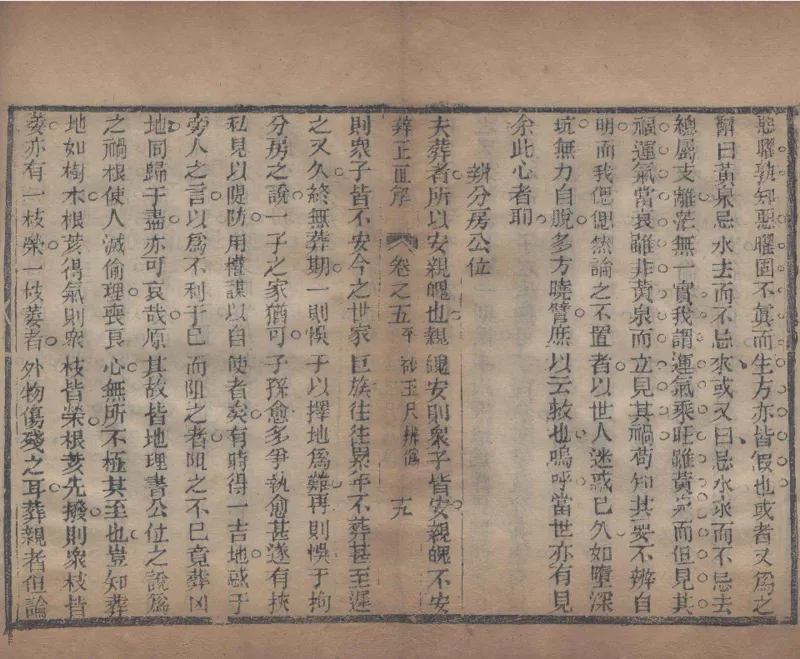 惡曜孰知惡曜固不眞而生方亦皆假也或者又爲之
辭曰黃泉忌水去而不忌來或又曰忌水來而不忌去
總屬支離茫無一實我謂運氣乘旺雖黃泉而但見其
福運氣當衰雖非黃泉而立見其禍苟知其妄不辨自
明而我偲偲然論之不置者以世人迷惑已久如墮深
坑無力自脫多方曉譬庶以云救也嗚呼當世亦有見
余此心者耶
辨分房公位
夫葬者所以安親魄也親魄安則衆子皆安親魄不安
辨正直解 卷之五 平砂玉尺辨僞 十九
則衆子皆不安今之世家巨族往往累年不葬甚至遲
之又久終無葬期一則悞于以擇地爲難再則悞于拘
分房之說一子之家猶可子孫愈多爭執愈甚遂有挾
私見以隄防用權謀以自使者矣有時得一吉地惑于
旁人之言以爲不利于己而阻之者阻之不已竟葬凶
地同歸于盡亦可哀哉原其故皆地理書公位之說爲
之禍根使人滅倫理喪良心無所不極其至也豈知葬
地如樹木根荄得氣則衆枝皆榮根荄先撥則衆枝皆
萎亦有一枝榮一枝萎者外物傷殘之耳葬親者但論